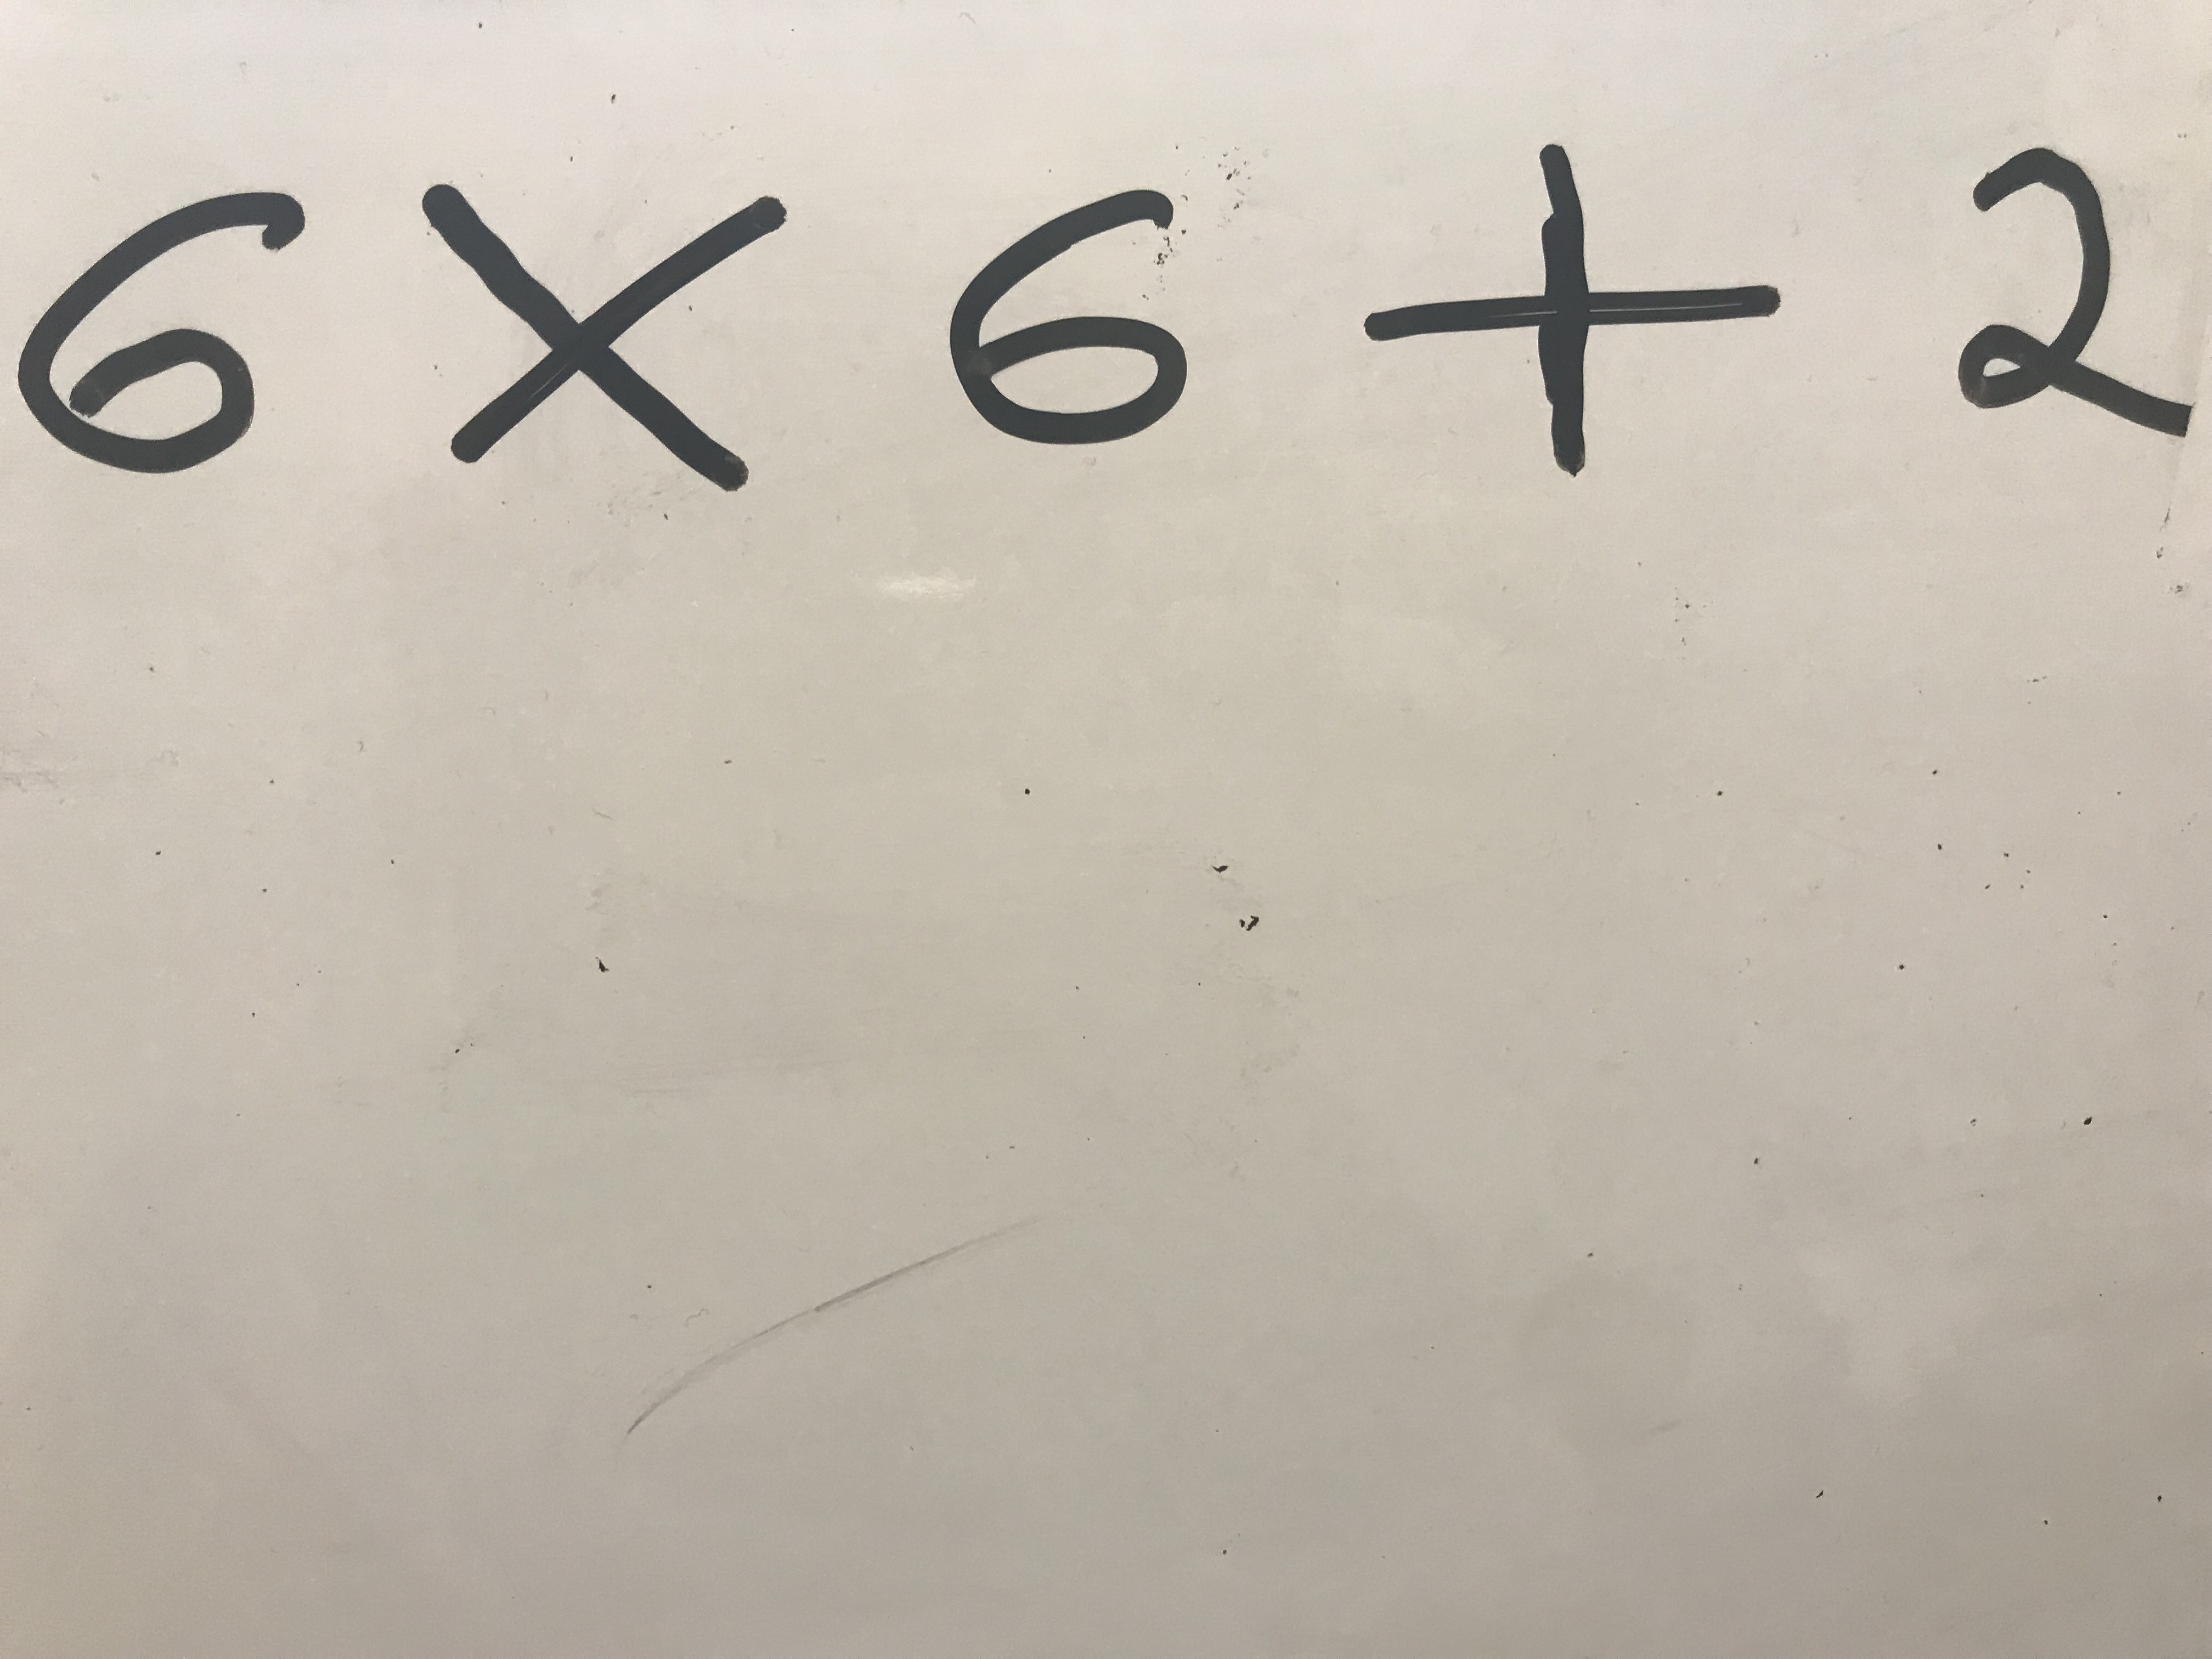 6 × 6 + 2